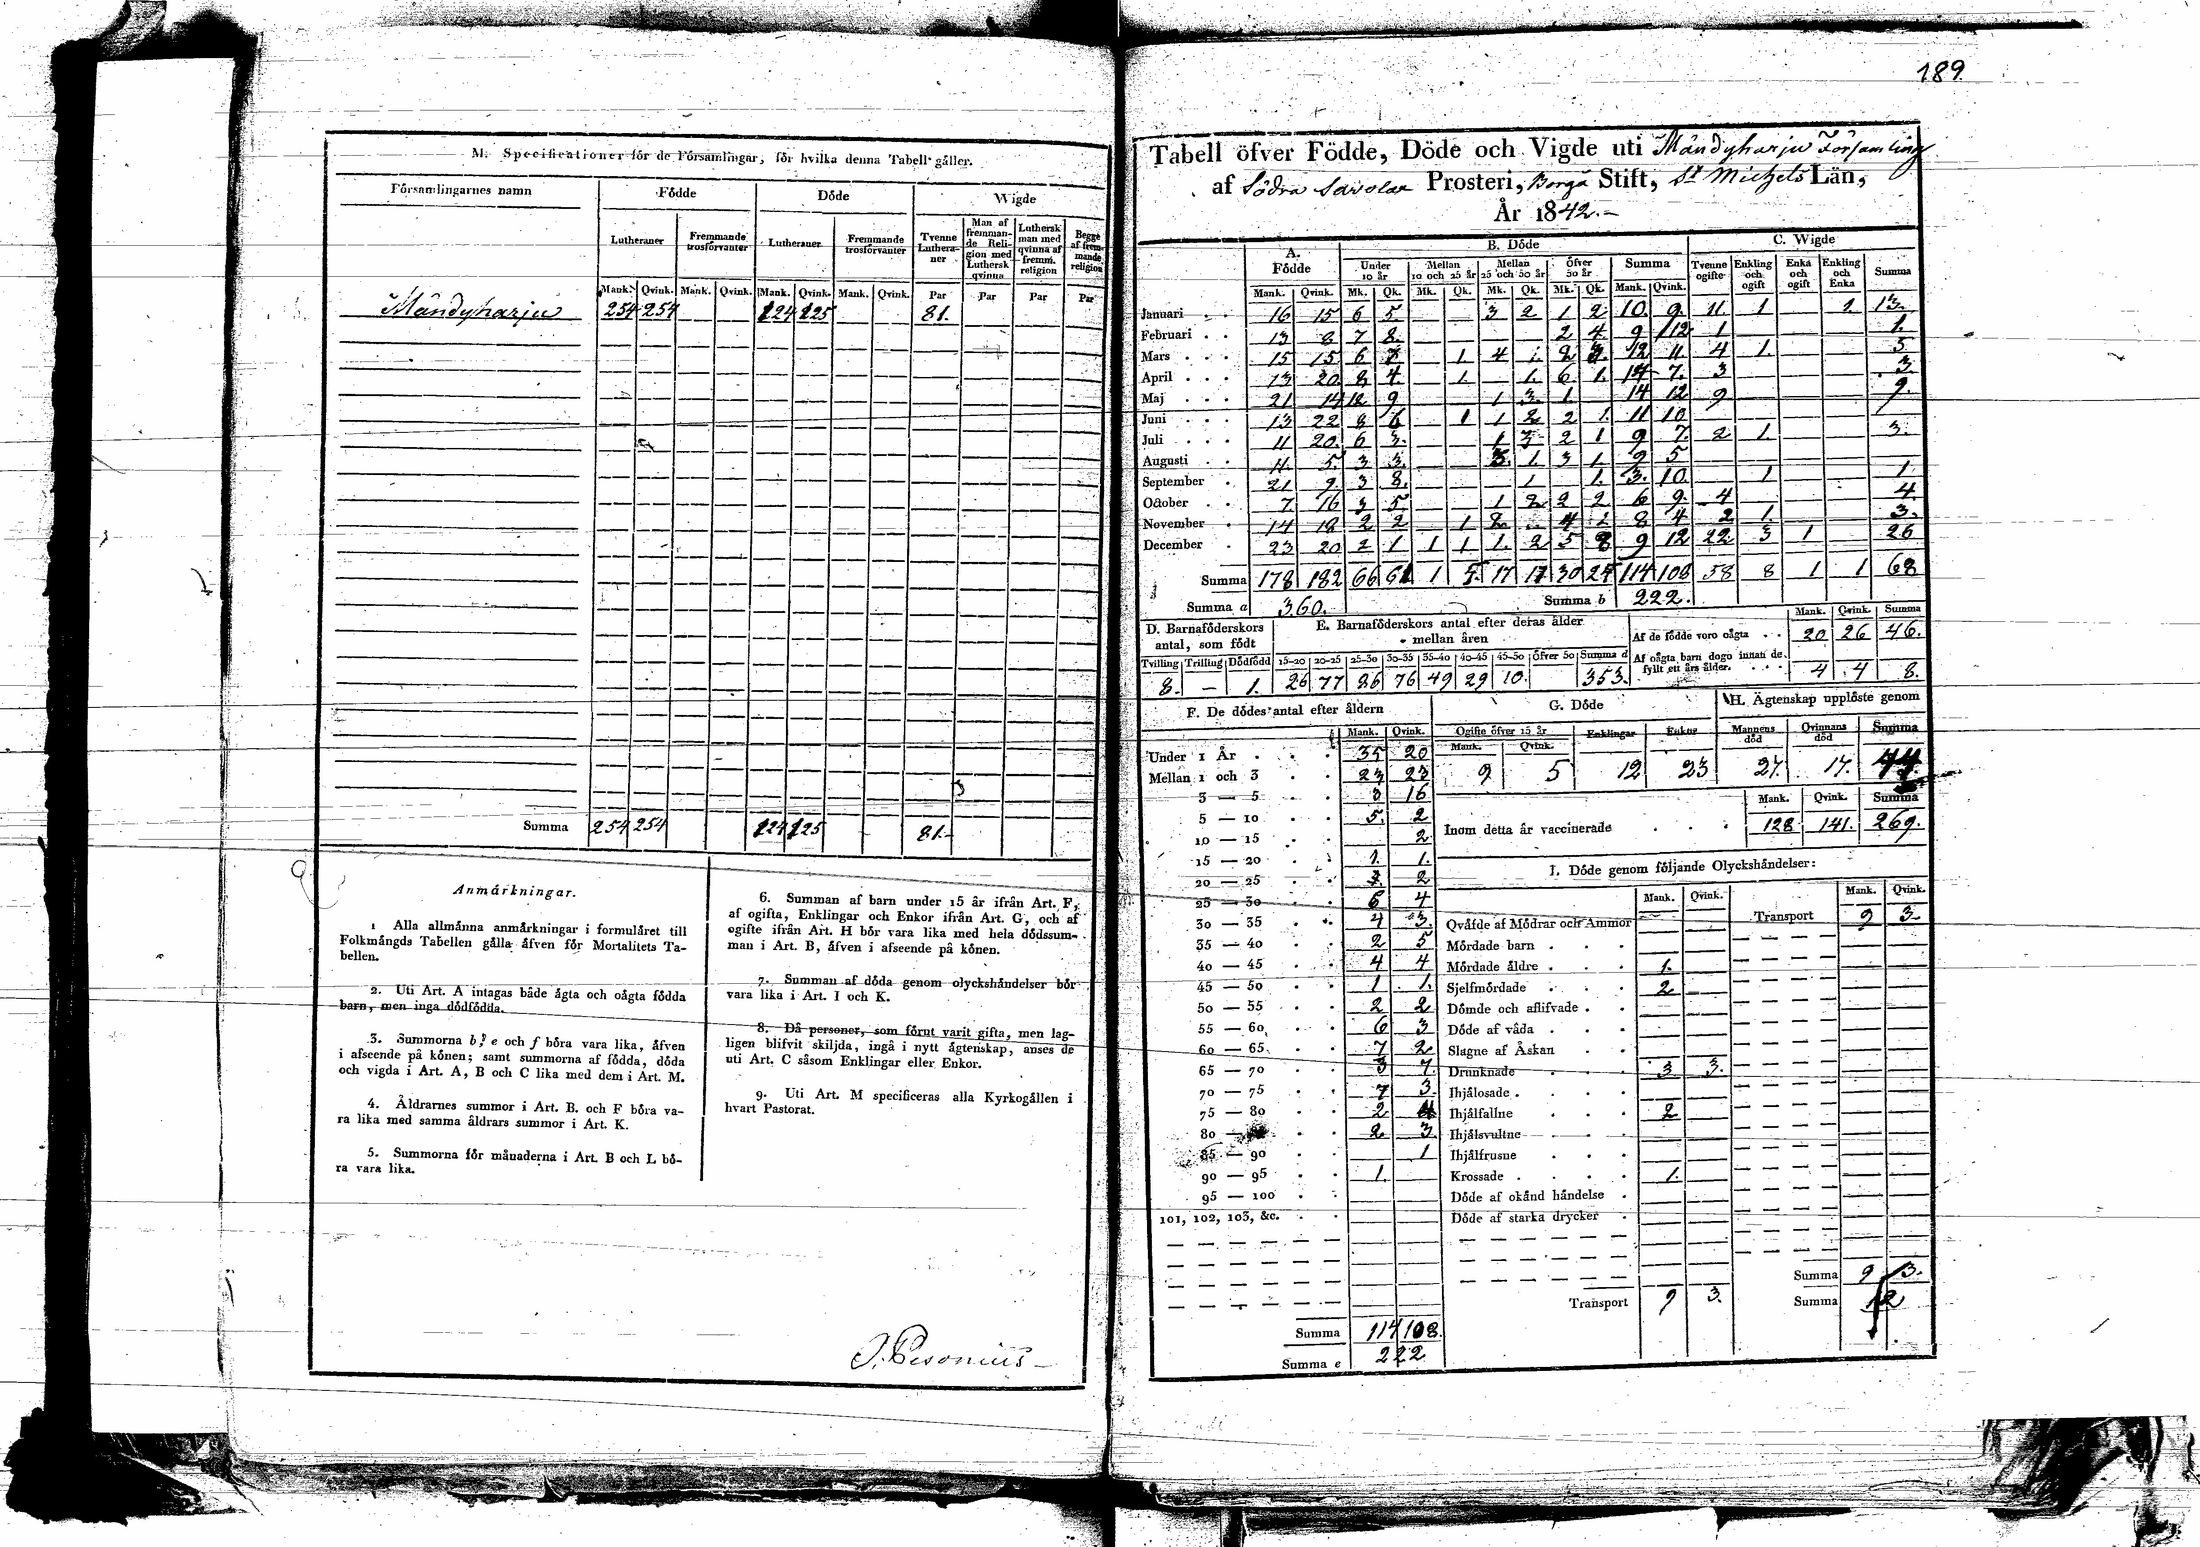 189.
M. Specificationer för de Församlingar, för hvilka denna Tabell gäller.
Församlingarnes namn
Födde
Döde
Wigde
Lutheraner
Fremmande trosförvanter
Lutheraner
Fremmande trosförvanter
Tvenne Lutheraner
Man af fremmande Religion med Luthersk qvinna
Luthersk man med qvinna af fremm. religion
Begge af fremmande religion
Mank. Qvink. Mank. Qvink. Mank. Qvink. Mank. Qvink. Par Par Par Par
Mändyharju 254 254 124 125 81.
Summa 254 254 124 125 81.
Anmärkningar.
1 Alla allmänna anmärkningar i formuläret till
Folkmängds Tabellen gälla äfven för Mortalitets Ta-
bellen.
2. Uti Art. A intagas både ägta och oägta födda
barn, men inga dödfödda.
3. Summorna b, e och f böra vara lika, äfven
i afseende på könen; samt summorna af födda, döda
och vigda i Art. A, B och C lika med dem i Art. M.
4. Äldrarnes summor i Art. B. och F böra va-
ra lika med samma äldrars summor i Art. K.
5. Summorna för månaderna i Art. B och L bö-
ra vara lika.
6. Summan af barn under 15 år ifrån Art. F,
af ogifta, Enklingar och Enkor ifrån Art. G, och af
ogifte ifrån Art. H bör vara lika med hela dödssum-
man i Art. B, äfven i afseende på könen.
7. Summan af döda genom olyckshändelser bör
vara lika i Art. I och K.
8. Då personer, som förut varit gifta, men lag-
ligen blifvit skiljda, ingå i nytt ägtenskap, anses de
uti Art. C såsom Enklingar eller Enkor.
9. Uti Art. M specificeras alla Kyrkogällen i
hvart Pastorat.
J. Pesonius
Tabell öfver Födde, Döde och Vigde uti Mändyharju Församling
af Södra Savolax Prosteri, Borgå Stift, St Michels Län,
År 1842.
A. Födde
B. Döde
C. Wigde
Under 10 år
Mellan 10 och 25 år
Mellan 25 och 50 år
Öfver 50 år
Summa
Tvenne ogifte
Enkling och ogift
Enka och ogift
Enkling och Enka
Summa
Mank. Qvink. Mk. Qk. Mk. Qk. Mk. Qk. Mk. Qk. Mank. Qvink.
Januari 16 15 6 5 3 2 1 2 10. 9. 11. 1 1. 13.
Februari 13 8 7 8. 2 4. 9 12 1 1.
Mars 15 15 6 1 4 12 11 4 1. 5.
April 13 20 8 4. 1. 1. 6. 1. 14 7. 3 3.
Maj 21 14 12 9 1 3. 1 14 12 9 9.
Juni 13 22 8 6 1 1 2 2 1. 11 10.
Juli 11 20. 6 3. 1 3 2 1 9 7. 2 1. 3.
Augusti 11. 5. 3 3. 3. 1. 3 1. 9 5
September 21 9. 3 8. 1 1. 3. 10. 1 1
October 7 16 3 5. 1 2 2 2 6 9. 4 4.
November 14 18 2 2 1 2 4 8 4 2 1 3.
December 23 20 2 1 1 1 1. 2 5 8 9 12 22 3 1 26
Summa 178 182 66 61 1 5. 17 17 30 25 114 108 58 8 1 1 68
Summa a 360.
Summa b 222.
D. Barnaföderskors antal, som födt
Tvilling Trilling Dödfödd
8. — 1.
E. Barnaföderskors antal efter deras ålder
mellan åren
15—20 20—25 25—30 30—35 35—40 40—45 45—50 Öfver 50 Summa d
26 77 86 76 49 29 10. 353.
Mank. Qvink. Summa
Af de födde voro oägta 20 26 46.
Af oägta barn dogo innan de
fyllt ett års ålder. 4 4 8.
F. De dödes antal efter åldern
Mank. Qvink.
Under 1 År 35 20
Mellan 1 och 3 23 23
3 — 5 3 16
5 — 10 5. 2
10 — 15 2
15 — 20 1. 1.
20 — 25 2
25 — 30 6 4
30 — 35 4 3.
35 — 40 2 5
40 — 45 4 4
45 — 50 1 1.
50 — 55 2 2
55 — 60 6 3
60 — 65 7 2
65 — 70 3 7
70 — 75 7 3.
75 — 80 2 4
80 — 2 3
85 — 90 1
90 — 95 1.
95 — 100
101, 102, 103, &c.
Summa 114 108.
Summa e 222
G. Döde
Ogifte öfver 15 år
Mank. Qvink.
Enklingar
Enkor
9 5 12 23
H. Ägtenskap upplöste genom
Mannens död
Qvinnans död
Summa
27. 17. 44
Mank. Qvink. Summa
Inom detta år vaccinerade 128 141. 269.
I. Döde genom följande Olyckshändelser:
Mank. Qvink.
Qväfde af Mödrar och Ammor
Mördade barn
Mördade äldre 1.
Sjelfmördade 2
Dömde och aflifvade
Döde af våda
Slagne af Åskan
Drunknade 3 3.
Ihjälosade
Ihjälfallne 2
Ihjälsvultne
Ihjälfrusne
Krossade 1.
Döde af okänd händelse
Döde af starka drycker
Transport 9 3.
Mank. Qvink.
Transport 9 3
Summa 9 3.
Summa 12